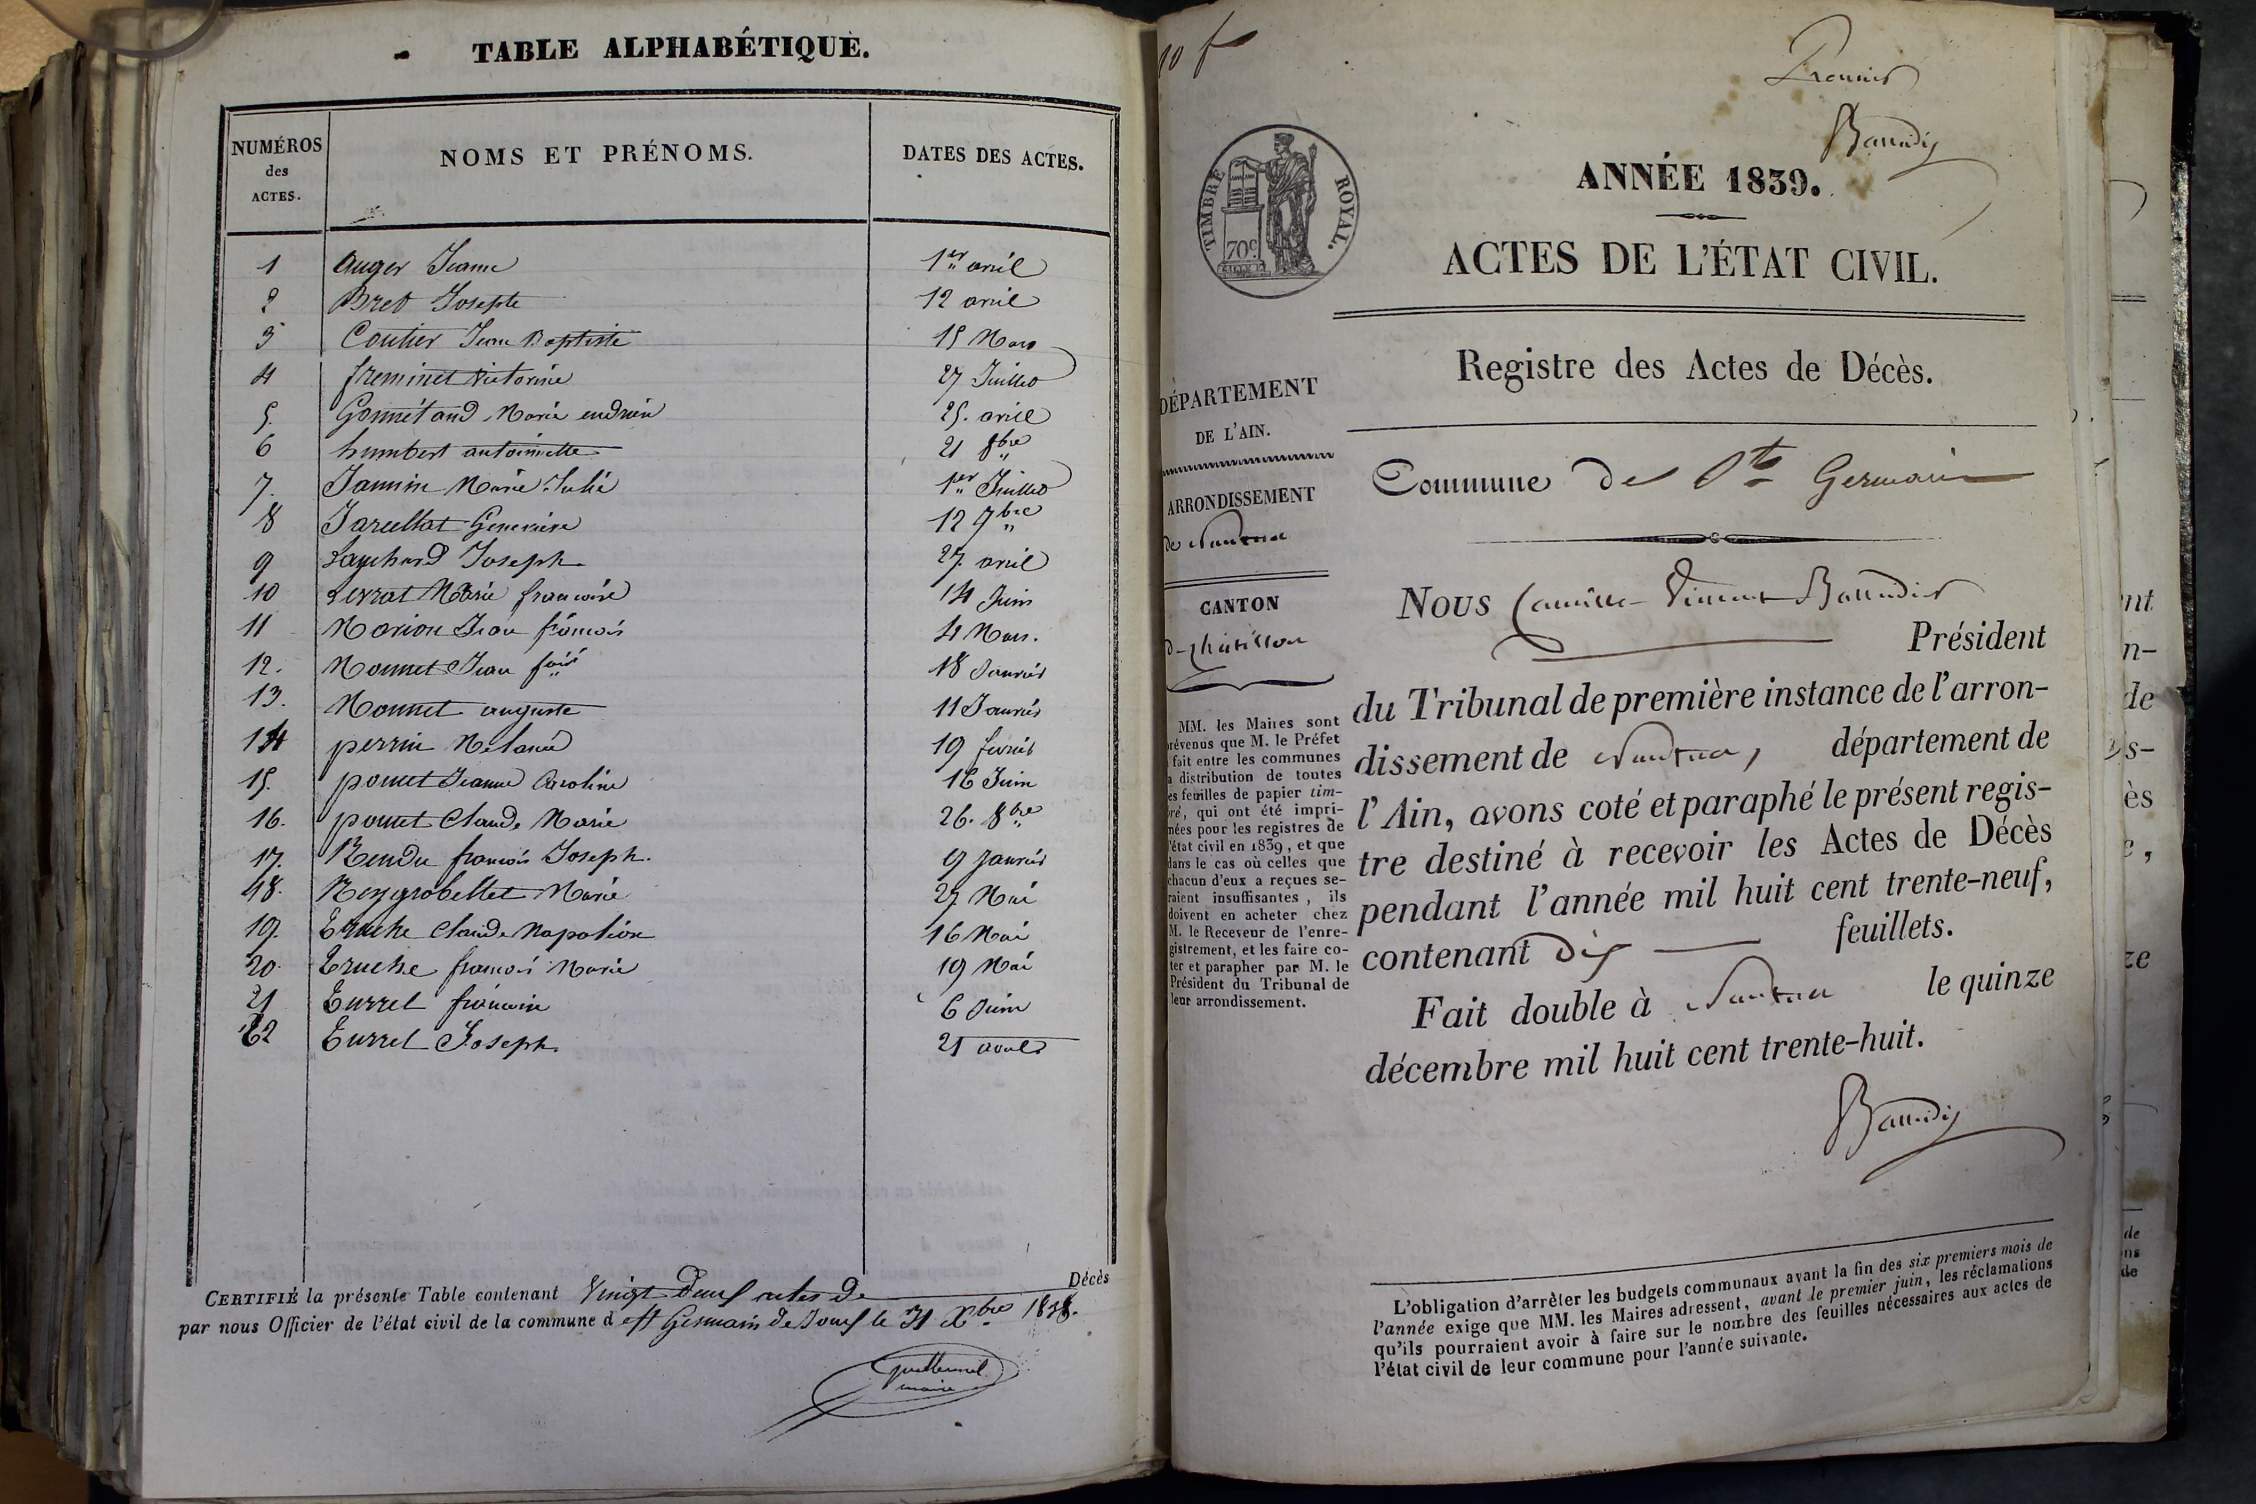 TABLE ALPHABÉTIQUE.
NUMÉROS des ACTES. NOMS ET PRÉNOMS. DATES DES ACTES.
1 Auger Jeanne 1er avril
2 Bret Josephte 12 avril
3 Coutier Jean Baptiste 15 Mars
4 freminet Victorine 27 Juillet
5. Gonnétand Marie 25. avril
6 humbert antoinette 21 8bre
7. Jannin Marie Julie 1er Juillet
8 Jarcellat Genevieve 12 9bre
9 Joseph 27. avril
10 Levrat Marie francoise 14 Juin
11 Marion Jean francois 4 Mars.
12. Monnet Jean fois 18 Janvier
13. Monnet auguste 11 Janvier
14 perrin Melanie 19 fevrier
15. ponet Jeanne Caroline 16 Juin
16. ponet Claude Marie 26. 8bre
17. Rendu francois Joseph. 9 Janvier
18. Reygrobellet Marie 27 Mai
19. Truche Claude Napoleon 16 Mai
20. Truche francois Marie 19 Mai
21 Turrel 6 Juin
22 Turrel Joseph. 21 aout
CERTIFIÉ la présente Table contenant Vingt Deux actes de Décès
par nous Officier de l'état civil de la commune d st Germain de Joux le 31 Xbre 1838.
maire
10 f
Premier
Baudin
TIMBRE ROYAL.
70c
ANNÉE 1839.
ACTES DE L'ÉTAT CIVIL.
Registre des Actes de Décès.
DÉPARTEMENT
DE L'AIN.
ARRONDISSEMENT
de Nantua
CANTON
d Chatillon
MM. les Maires sont
prévenus que M. le Préfet
fait entre les communes
la distribution de toutes
les feuilles de papier tim-
bré, qui ont été impri-
mées pour les registres de
l'état civil en 1839, et que
dans le cas où celles que
chacun d'eux a reçues se-
raient insuffisantes, ils
doivent en acheter chez
M. le Receveur de l'enre-
gistrement, et les faire co-
ter et parapher par M. le
Président du Tribunal de
leur arrondissement.
Commune de St Germain
Nous Camille Vincent
Président
du Tribunal de première instance de l'arron-
dissement de Nantua, département de
l'Ain, avons coté et paraphé le présent regis-
tre destiné à recevoir les Actes de Décès
pendant l'année mil huit cent trente-neuf,
contenant dix feuillets.
Fait double à Nantua le quinze
décembre mil huit cent trente-huit.
L'obligation d'arrêter les budgets communaux avant la fin des six premiers mois de
l'année exige que MM. les Maires adressent, avant le premier juin, les réclamations
qu'ils pourraient avoir à faire sur le nombre des feuilles nécessaires aux actes de
l'état civil de leur commune pour l'année suivante.